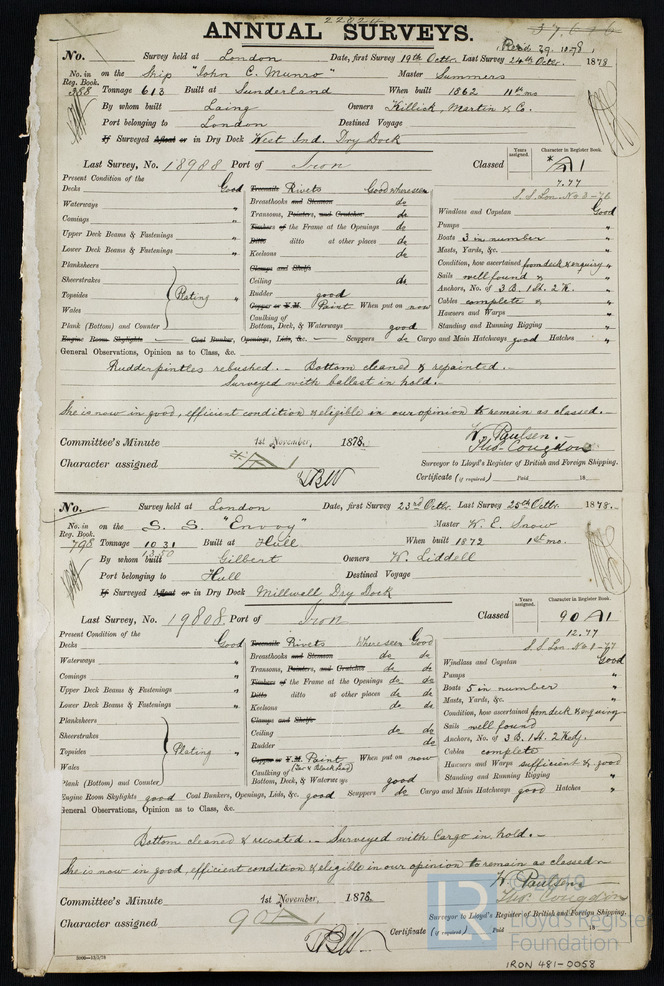 22024
ANNUAL SURVEYS.
Recd 29.10.78
No. Survey held at London Date, first Survey 19th Octbr. Last Survey 24th Octbr. 1878
No. in Reg. Book. 358 on the Ship "John C. Munro" Master Summers
Tonnage 613 Built at Sunderland When built 1862 11th mo
By whom built Laing Owners Killick, Martin & Co.
Port belonging to London Destined Voyage
If Surveyed Afloat or in Dry Dock West Ind. Dry Dock
Last Survey, No. 18988 Port of Iron Classed *A1
Years assigned. Character in Register Book.
7.77
S.S. Lon. No 3-76
Present Condition of the
Decks Good Treenails Rivets Good where seen
Waterways " Breasthooks and Stemson do
Comings " Transoms, Pointers, and Crutches do
Upper Deck Beams & Fastenings " Timbers of the Frame at the Openings do
Lower Deck Beams & Fastenings " Ditto ditto at other places do
Planksheers Keelsons do
Sheerstrakes Clamps and Shelfs
Topsides Plating " Ceiling do
Wales Rudder good
Plank (Bottom) and Counter Copper or Y.M. Paint When put on now
Caulking of Bottom, Deck, & Waterways good
Windlass and Capstan Good
Pumps "
Boats 3 in number "
Masts, Yards, &c. "
Condition, how ascertained from deck & enquiry "
Sails well found &
Anchors, No. of 3 B. 1 St. 2 K. "
Cables complete & "
Hawsers and Warps "
Standing and Running Rigging "
Engine Room Skylights — Coal Bunker, Openings, Lids, &c. — Scuppers do Cargo and Main Hatchways good Hatches "
General Observations, Opinion as to Class, &c.
Rudderpintles rebushed. – Bottom cleaned & repainted. –
Surveyed with ballast in hold. –
She is now in good, efficient condition & eligible in our opinion to remain as classed. –
Committee's Minute 1st November, 1878. W. Paulsen. –
Tho. Congdon
Character assigned *A1 Surveyor to Lloyd's Register of British and Foreign Shipping.
TBW Certificate (if required) Paid 18
No. Survey held at London Date, first Survey 23rd Octbr. Last Survey 25th Octbr. 1878. –
No. in Reg. Book. 798 on the S. S. "Envoy" Master W. E. Snow
Tonnage 1031 Built at Hull When built 1872 1st mo.
1350
By whom built Gilbert Owners W. Liddell
Port belonging to Hull Destined Voyage
If Surveyed Afloat or in Dry Dock Millwall Dry Dock
Last Survey, No. 19808 Port of Iron Classed 90 A1
Years assigned. Character in Register Book.
12.77
S.S. Lon No 1-77
Present Condition of the
Decks Good Treenails Rivets Where seen Good
Waterways " Breasthooks and Stemson do do
Comings " Transoms, Pointers, and Crutches do do
Upper Deck Beams & Fastenings " Timbers of the Frame at the Openings do do
Lower Deck Beams & Fastenings " Ditto ditto at other places do do
Planksheers Keelsons do do
Sheerstrakes Clamps and Shelfs
Topsides Plating " Ceiling do do
Wales Rudder do
Plank (Bottom) and Counter Copper or Y.M. Paint When put on now
Caulking of Bottom, Deck, & Waterways good
Windlass and Capstan Good
Pumps "
Boats 5 in number "
Masts, Yards, &c. "
Condition, how ascertained from deck & enquiry
Sails well found "
Anchors, No. of 3 B. 1 St. 2 Kedg. "
Cables complete "
Hawsers and Warps sufficient & good
Standing and Running Rigging "
Engine Room Skylights good Coal Bunkers, Openings, Lids, &c. good Scuppers do Cargo and Main Hatchways good Hatches "
General Observations, Opinion as to Class, &c.
Bottom cleaned & recoated. – Surveyed with Cargo in hold. –
She is now in good, efficient condition & eligible in our opinion to remain as classed –
Committee's Minute 1st November, 1878. W. Paulsen
Tho. Congdon
Character assigned 90 A1 Surveyor to Lloyd's Register of British and Foreign Shipping.
TBW Certificate (if required) Paid 18
LR © 2019
Lloyd's Register
Foundation
IRON 481-0058